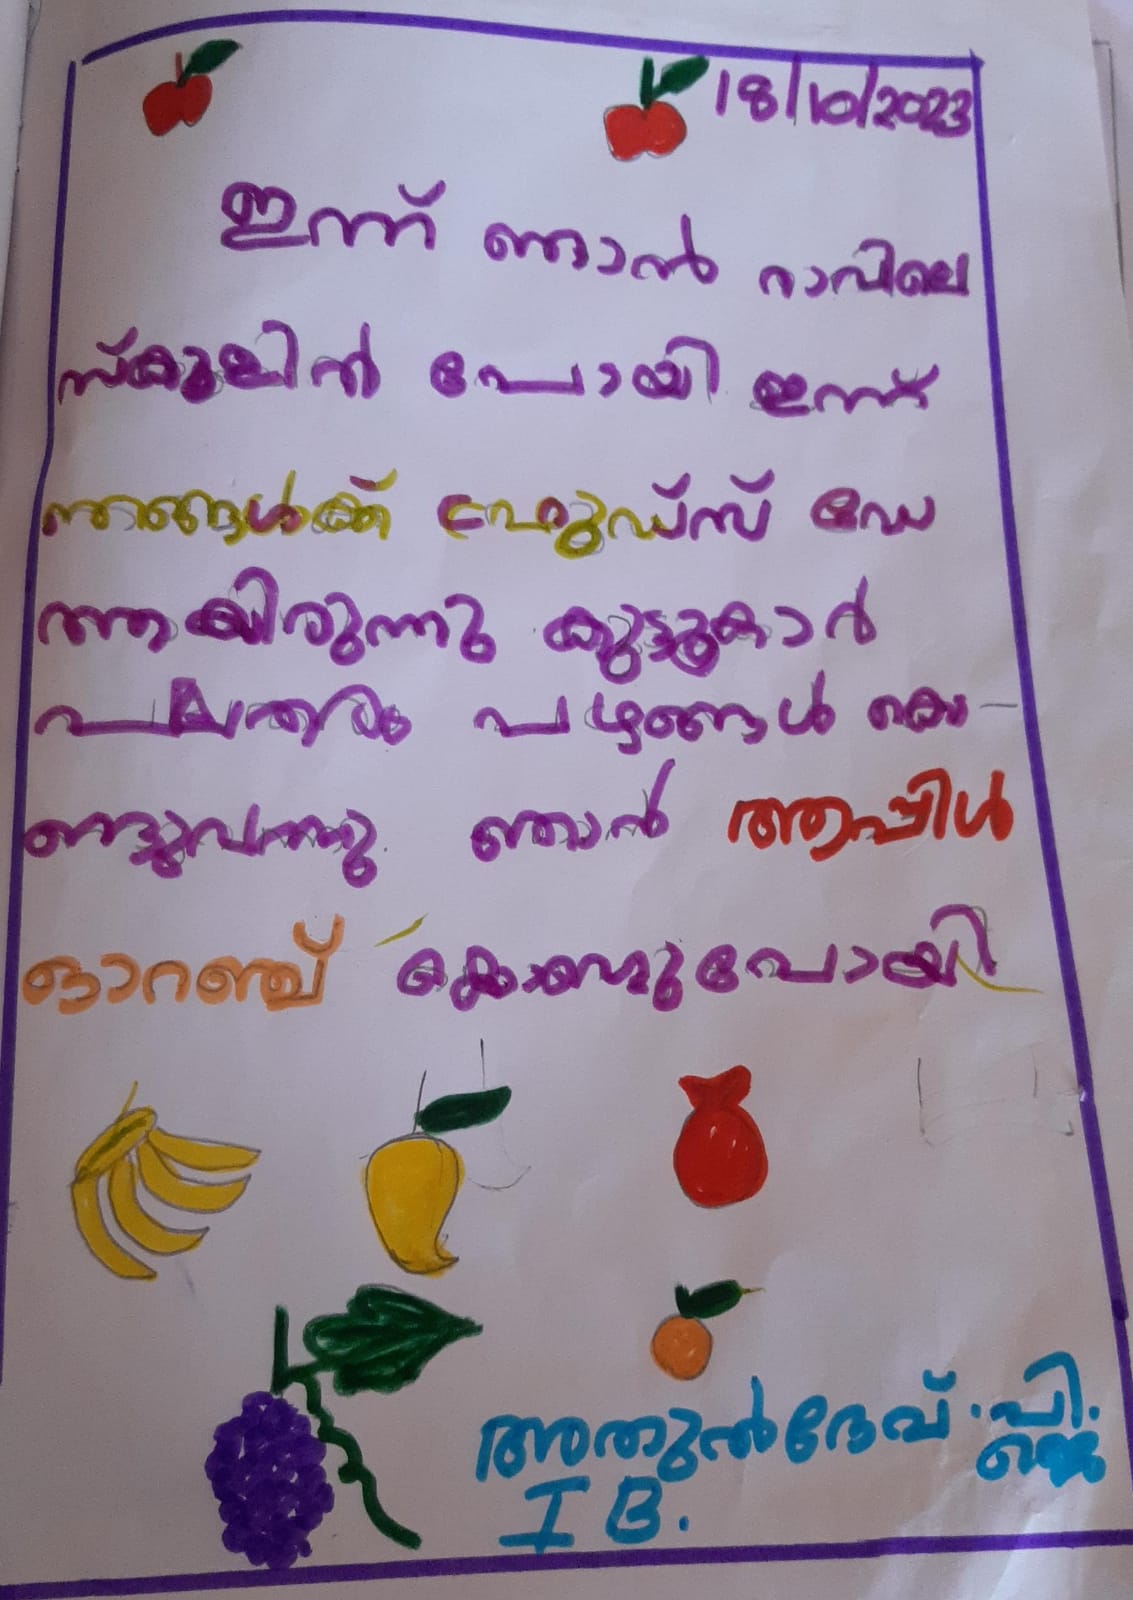 18/10/2023
ഇന്ന് ഞാൻ രാവിലെ
സ്കൂളിൽ പോയി ഇന്ന്
ഞങ്ങൾക്ക് ഫ്രൂഡ്സ് ഡേ
ആയിരുന്നു കൂട്ടുകാർ
പലതരം പഴങ്ങൾ കൊ-
ണ്ടുവന്നു ഞാൻ ആപ്പിൾ
ഓറഞ്ച് കൊണ്ടുപോയി
അതുൽദേവ്. പി.
ജെ
I B.